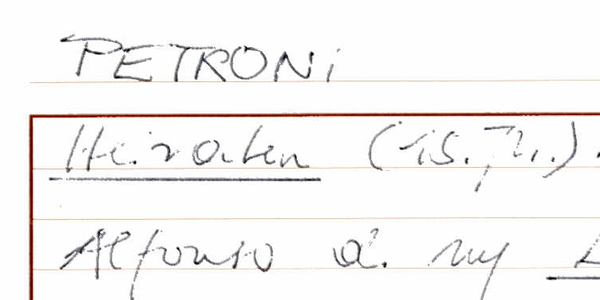 PETRONi
Heiraten (15. Jh.).
Alfonso d.